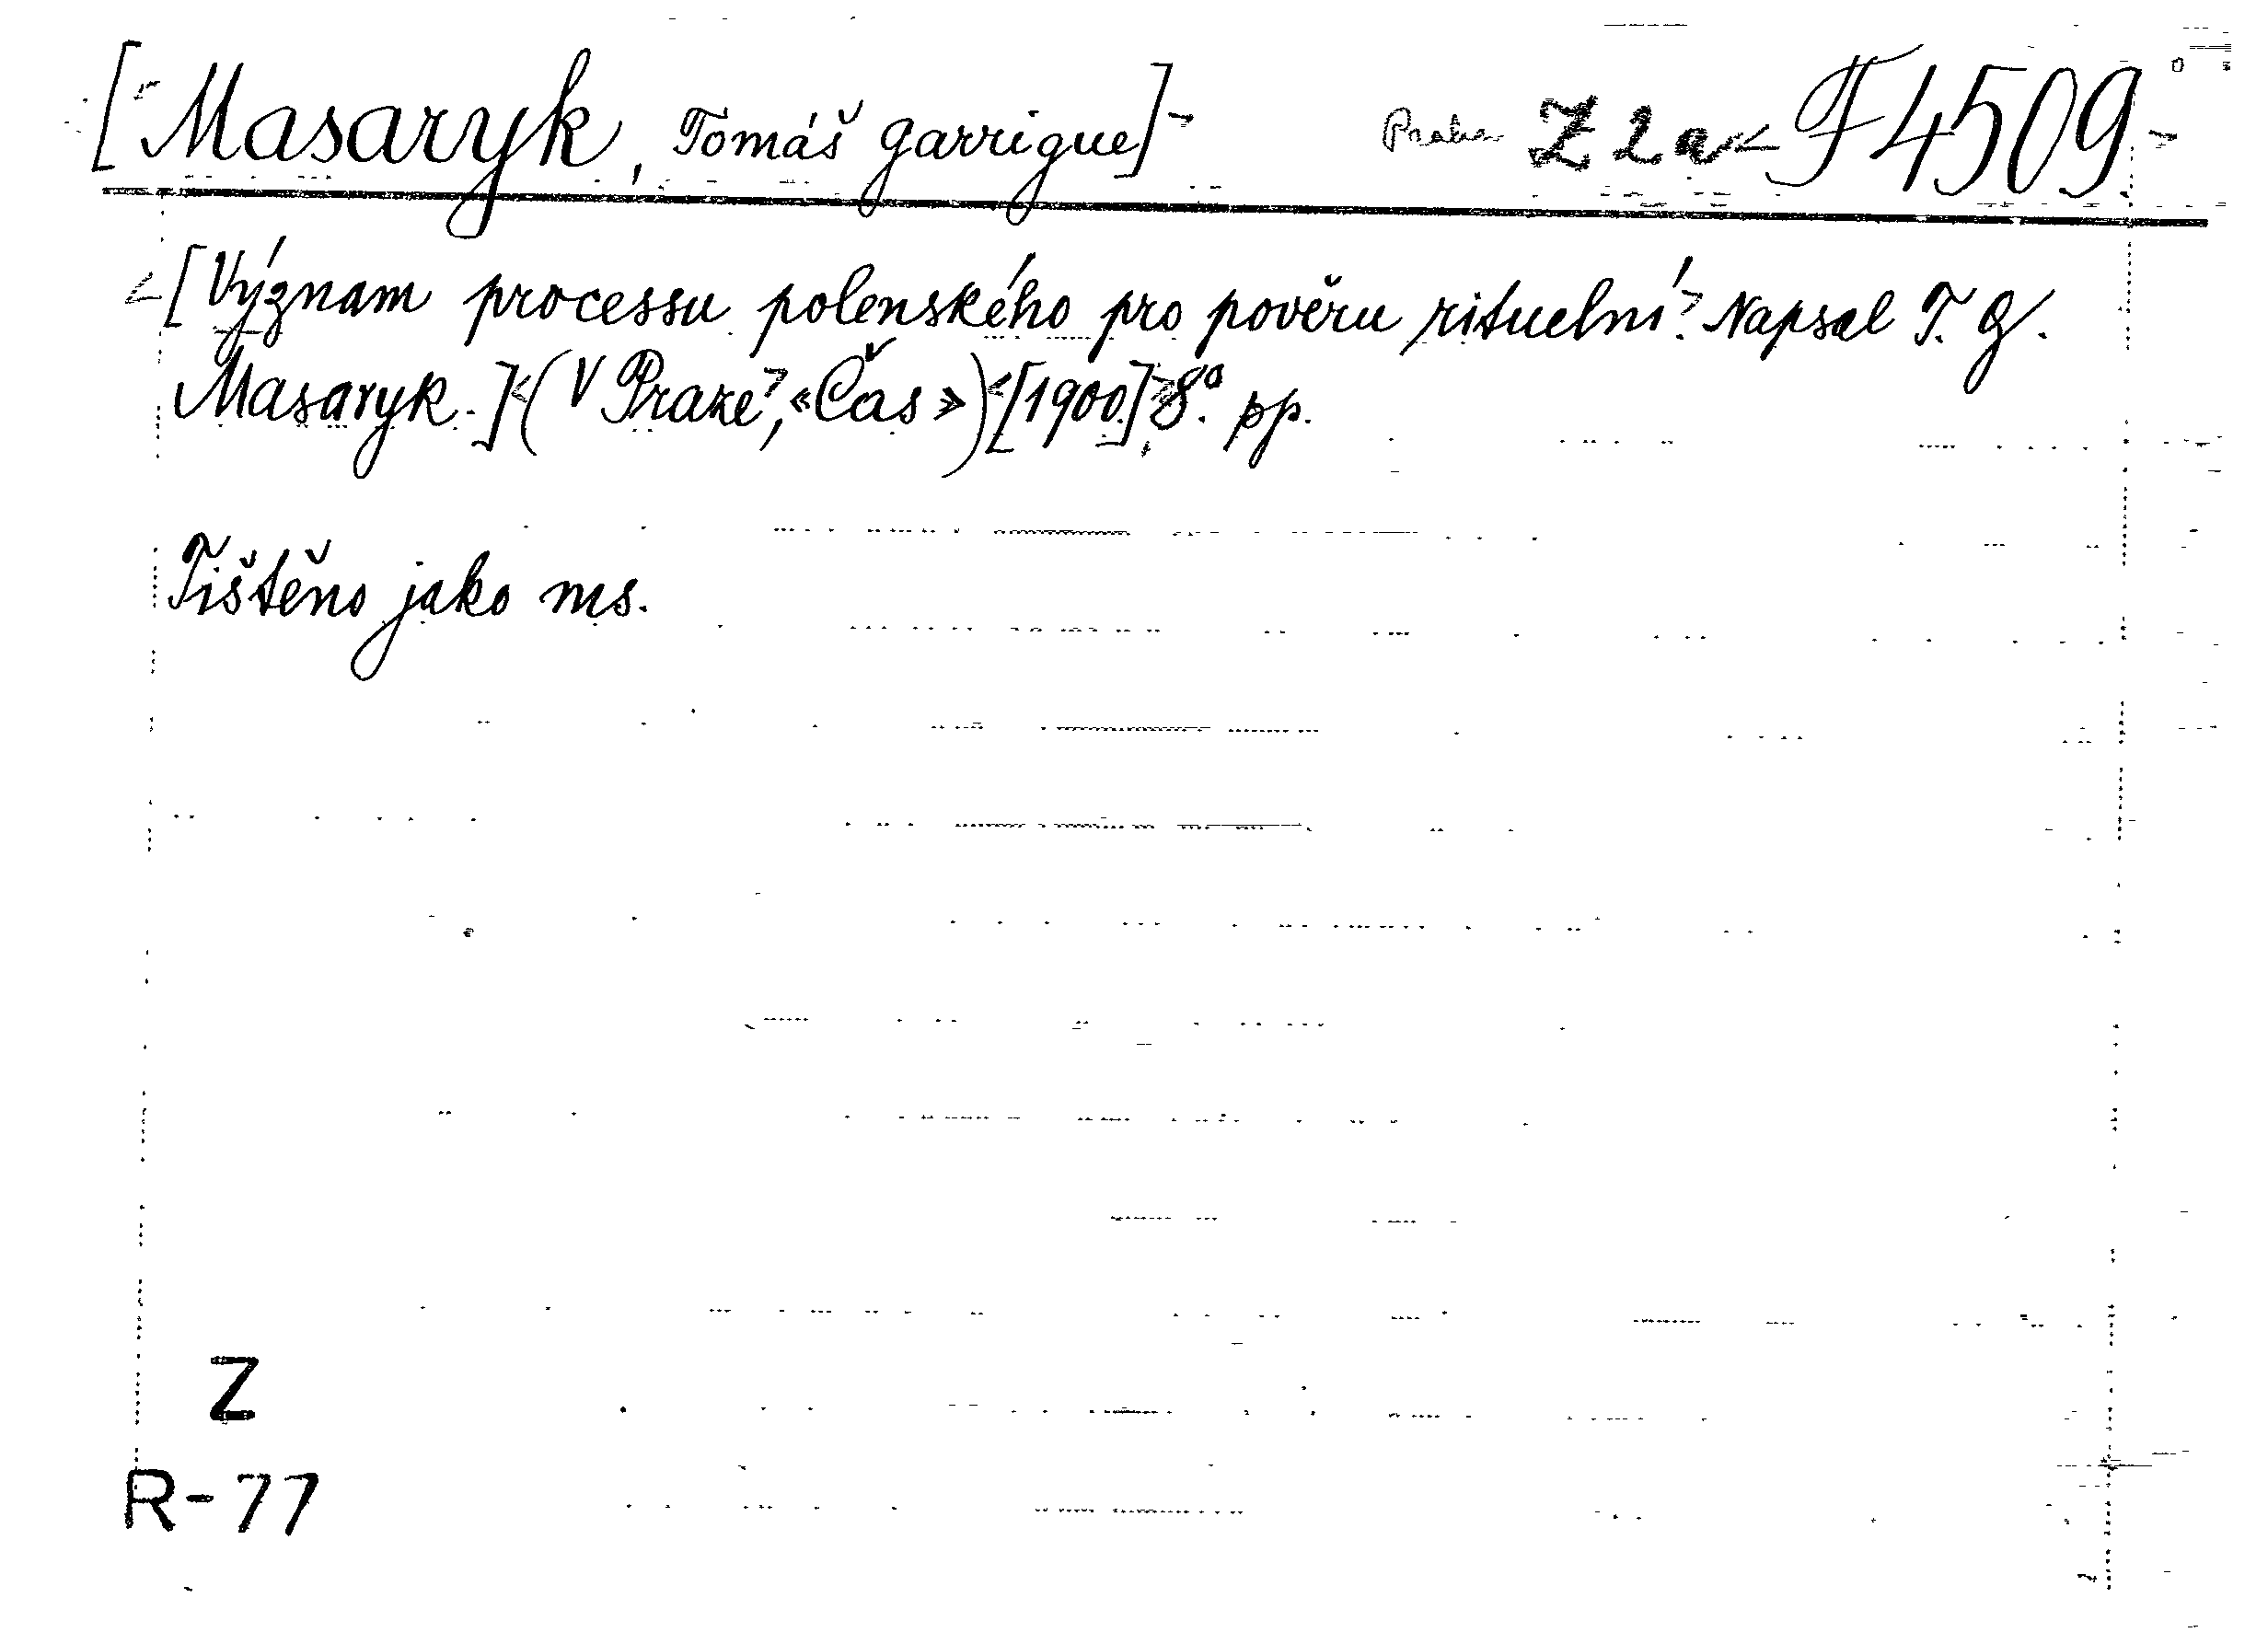 [Masaryk, Tomáš Garrigue] Praha Z 2 a F 4509
[Význam processu polenského pro pověru rituelní. Napsal T. G.
Masaryk.] (V Praze, «Čas») [1900.] 8°. pp.
Tištěno jako ms.
Z
R-77